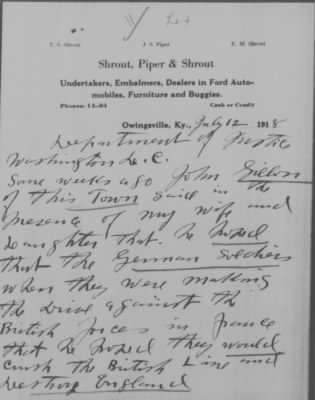 T. S. Shrout J. S. Piper E. M. Shrout
Shrout, Piper & Shrout
Undertakers, Embalmers, Dealers in Ford Auto-
mobiles, Furniture and Buggies.
Phones: 14-94 Cash or Credit
Owingsville, Ky., July 12 1918
Department of Justice
Washington D.C.
Some weeks ago John
of this Town said in the
presence of my wife and
daughter that he hoped
that the German soldiers
when they were making
the drive against the
British forces in france
that he hoped they would
crush the British Line and
destroy England